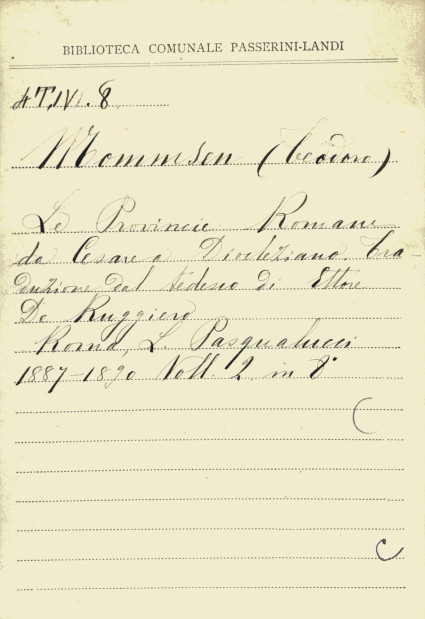 BIBLIOTECA COMUNALE PASSERINI-LANDI
4T.IV.8
Mommsen (Teodoro)
Le Provincie Romane
da Cesare a Diocleziano. Tra-
duzione dal tedesco di Ettore
De Ruggiero
Roma, L. Pasqualucci
1887-1890 Voll. 2 in 8°
C
C